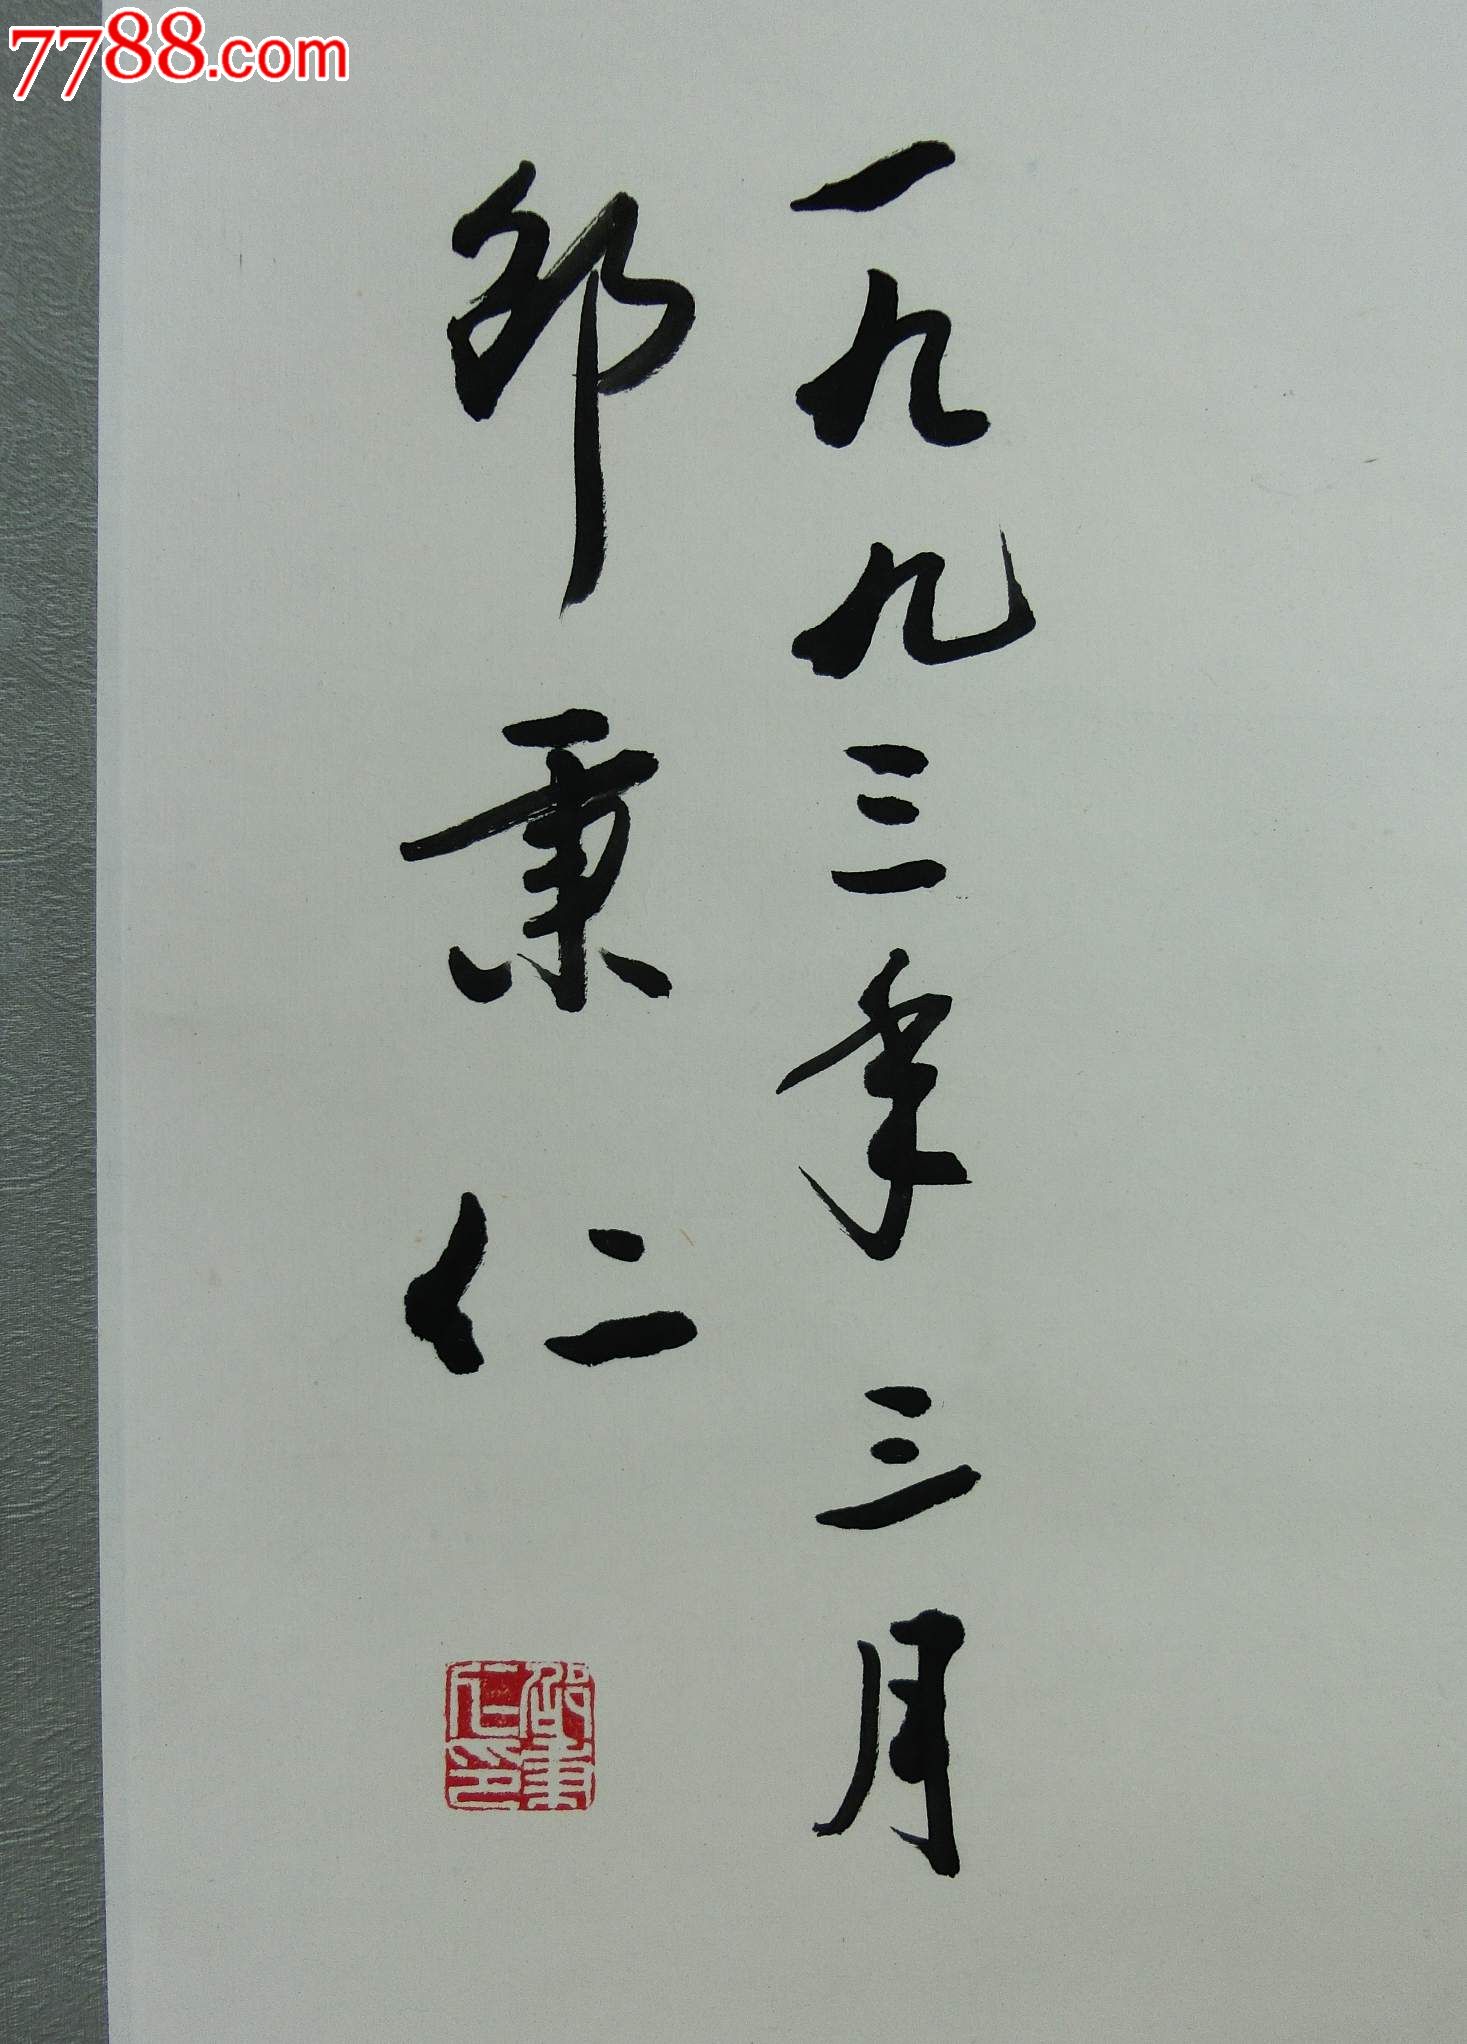 7788.com
一九九三年三月
邵秉仁
邵秉
仁印